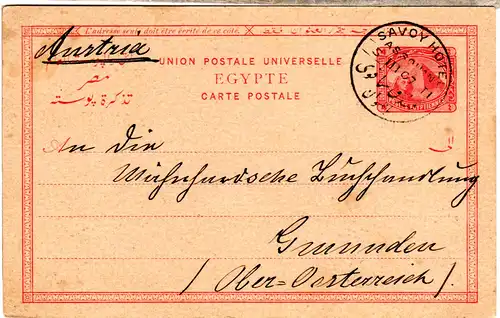 L'adresse seule doit être écrite de ce côté.
Austria
UNION POSTALE UNIVERSELLE
EGYPTE
CARTE POSTALE
مصر
تذكرة بوستة
SAVOY HOTEL
An die
Buchhandlung
Gmunden
(Ober-Oesterreich)